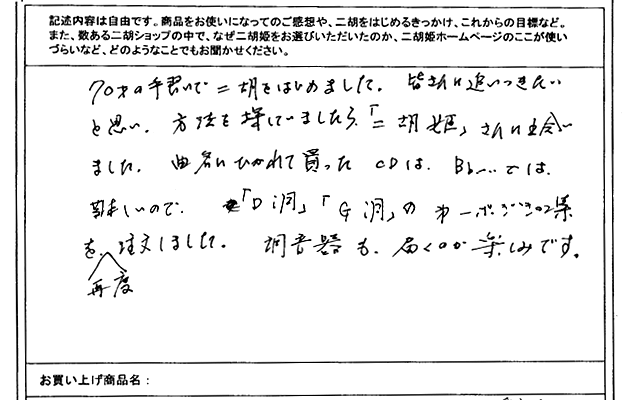 記述内容は自由です。商品をお使いになってのご感想や、二胡をはじめるきっかけ、これからの目標など。
また、数ある二胡ショップの中で、なぜ二胡姫をお選びいただいたのか、二胡姫ホームページのここが使い
づらいなど、どのようなことでもお聞かせください。
70才の手習いで二胡をはじめました。皆さんに追いつきたい
と思い、方法を探していましたら「二胡姫」さんに出会い
ました。曲名にひかれて買ったCDは、Bb...では、
難しいので、「D調」「G調」の
を再度注文しました。調音器も、届くのが楽しみです。
お買い上げ商品名: